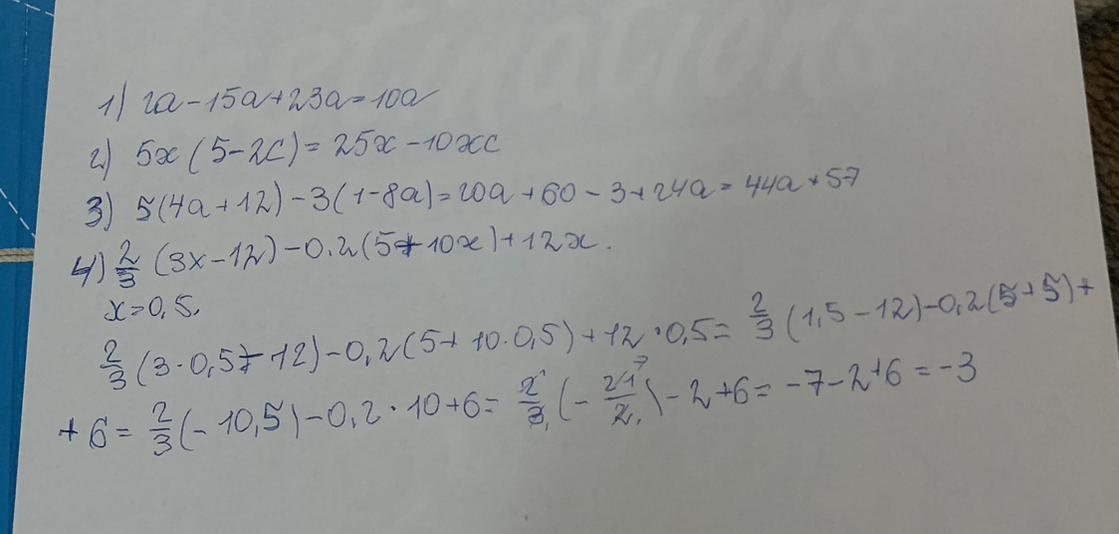 1) 2a-15a+23a=10a
2) 5x(5-2c)=25x-10xc
3) 5(4a+12)-3(1-8a)=20a+60-3+24a=44a+57
4) 2/3 (3x-12)-0.2(5+10x)+12x.
x=0,5.
2/3 (3·0,5-12)-0,2(5+10·0,5)+12·0,5= 2/3 (1,5-12)-0,2(5+5)+
+6= 2/3 (-10,5)-0,2·10+6= 2/3 (-21/2)-2+6=-7-2+6=-3